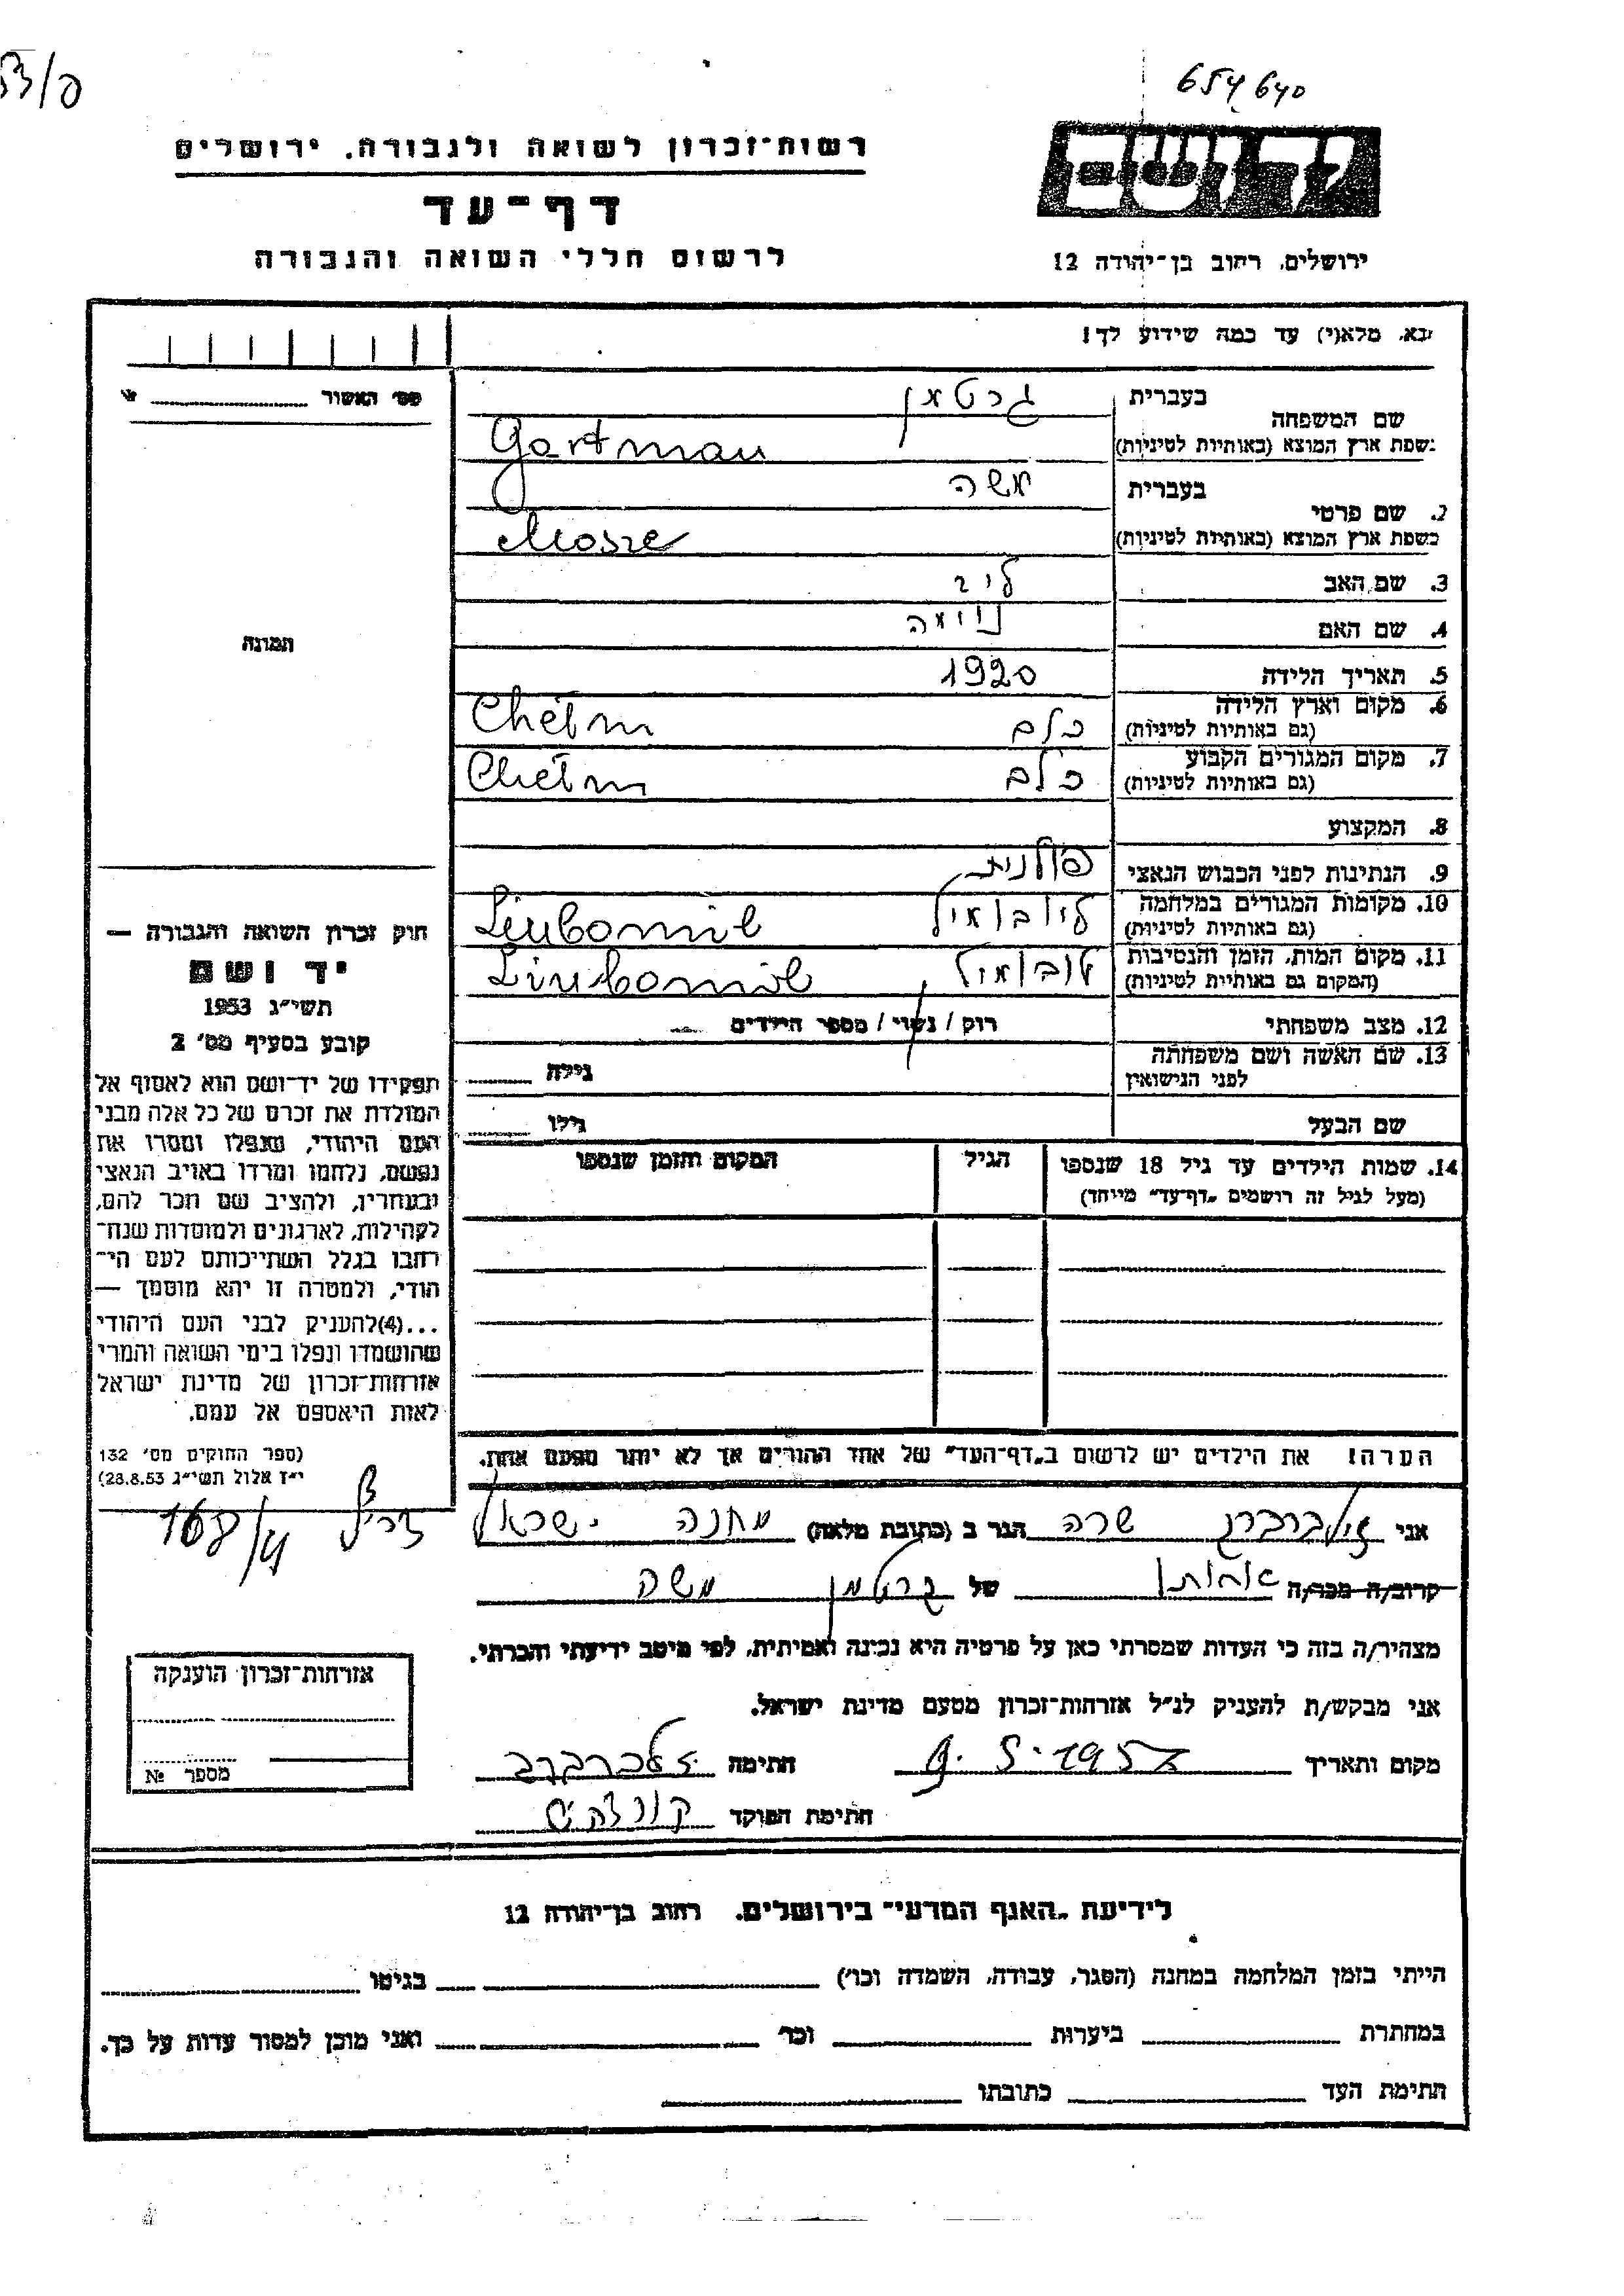 654640
רשות־זכרון לשואה ולגבורה. ירושלים
דף־עד
לרשום חללי השואה והגבורה
ירושלים, רחוב בן־יהודה 12
נא, מלא(י) עד כמה שידוע לך!
מס' האשור
שם המשפחה
בעברית
גרטמן
בשפת ארץ המוצא (באותיות לטיניות)
Gartman
2. שם פרטי
בעברית
משה
בשפת ארץ המוצא (באותיות לטיניות)
Mosze
3. שם האב
ליב
4. שם האם
5. תאריך הלידה 1920
6. מקום וארץ הלידה
(גם באותיות לטיניות)
כלם Chełm
7. מקום המגורים הקבוע
(גם באותיות לטיניות)
כלם Chełm
8. המקצוע
9. הנתינות לפני הכבוש הנאצי פולנית
10. מקומות המגורים במלחמה
(גם באותיות לטיניות)
ליובומיל Liubomil
11. מקום המות, הזמן והנסיבות
(המקום גם באותיות לטיניות)
לובומיל Liubomil
12. מצב משפחתי רוק / נשוי / מספר הילדים
13. שם האשה ושם משפחתה
לפני הנישואין
גילה
שם הבעל
גילו
14. שמות הילדים עד גיל 18 שנספו
(מעל לגיל זה רושמים „דף־עד" מייחד)
הגיל
המקום והזמן שנספו
הערה! את הילדים יש לרשום ב„דף־העד" של אחד ההורים אך לא יותר מפעם אחת.
תמונה
חוק זכרון השואה והגבורה —
יד ושם
תשי״ג 1953
קובע בסעיף מס' 2
תפקידו של יד־ושם הוא לאסוף אל
המולדת את זכרם של כל אלה מבני
העם היהודי, שנפלו ומסרו את
נפשם, נלחמו ומרדו באויב הנאצי
ובעוזריו, ולהציב שם וזכר להם,
לקהילות, לארגונים ולמוסדות שנח־
רבו בגלל השתייכותם לעם הי־
הודי, ולמטרה זו יהא מוסמך —
...(4)להעניק לבני העם היהודי
שהושמדו ונפלו בימי השואה והמרי
אזרחות־זכרון של מדינת ישראל
לאות היאספם אל עמם.
(ספר החוקים מס' 132
י״ז אלול תשי״ג 28.8.53)
אני זילברברג שרה הגר ב (כתובת מלאה) מחנה ישראל
קרוב/ה מכר/ה אחותו של גרטמן משה
מצהיר/ה בזה כי העדות שמסרתי כאן על פרטיה היא נכונה ואמיתית, לפי מיטב ידיעתי והכרתי.
אני מבקש/ת להעניק לנ״ל אזרחות־זכרון מטעם מדינת ישראל.
מקום ותאריך חתימה זילברברג
חתימת הפוקד
אזרחות־זכרון הוענקה
מספר №
לידיעת „האגף המדעי" בירושלים. רחוב בן־יהודה 12
הייתי בזמן המלחמה במחנה (הסגר, עבודה, השמדה וכו') בגיטו
במחתרת ביערות וכו' ואני מוכן למסור עדות על כך.
חתימת העד כתובתו